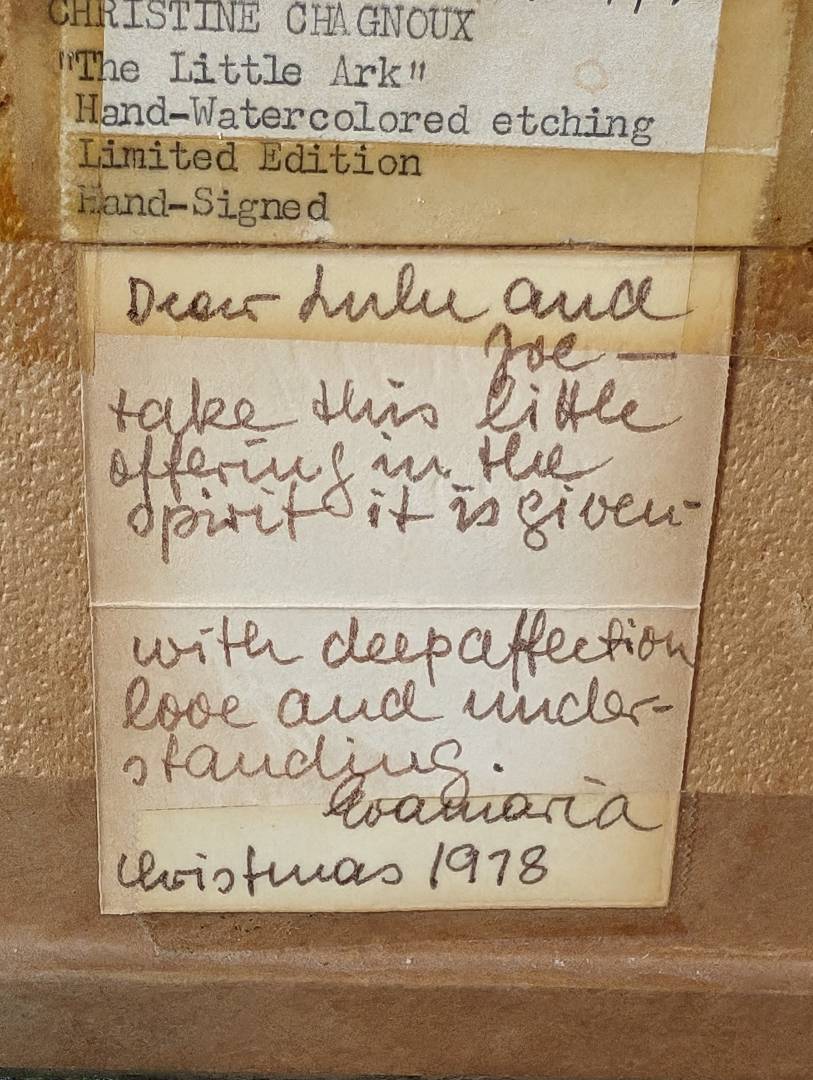 CHRISTINE CHAGNOUX
"The Little Ark"
Hand-Watercolored etching
Limited Edition
Hand-Signed
Dear Lulu and
Joe —
take this little
offering in the
spirit it is given-
with deep affection
love and under-
standing.
Evamaria
Christmas 1978